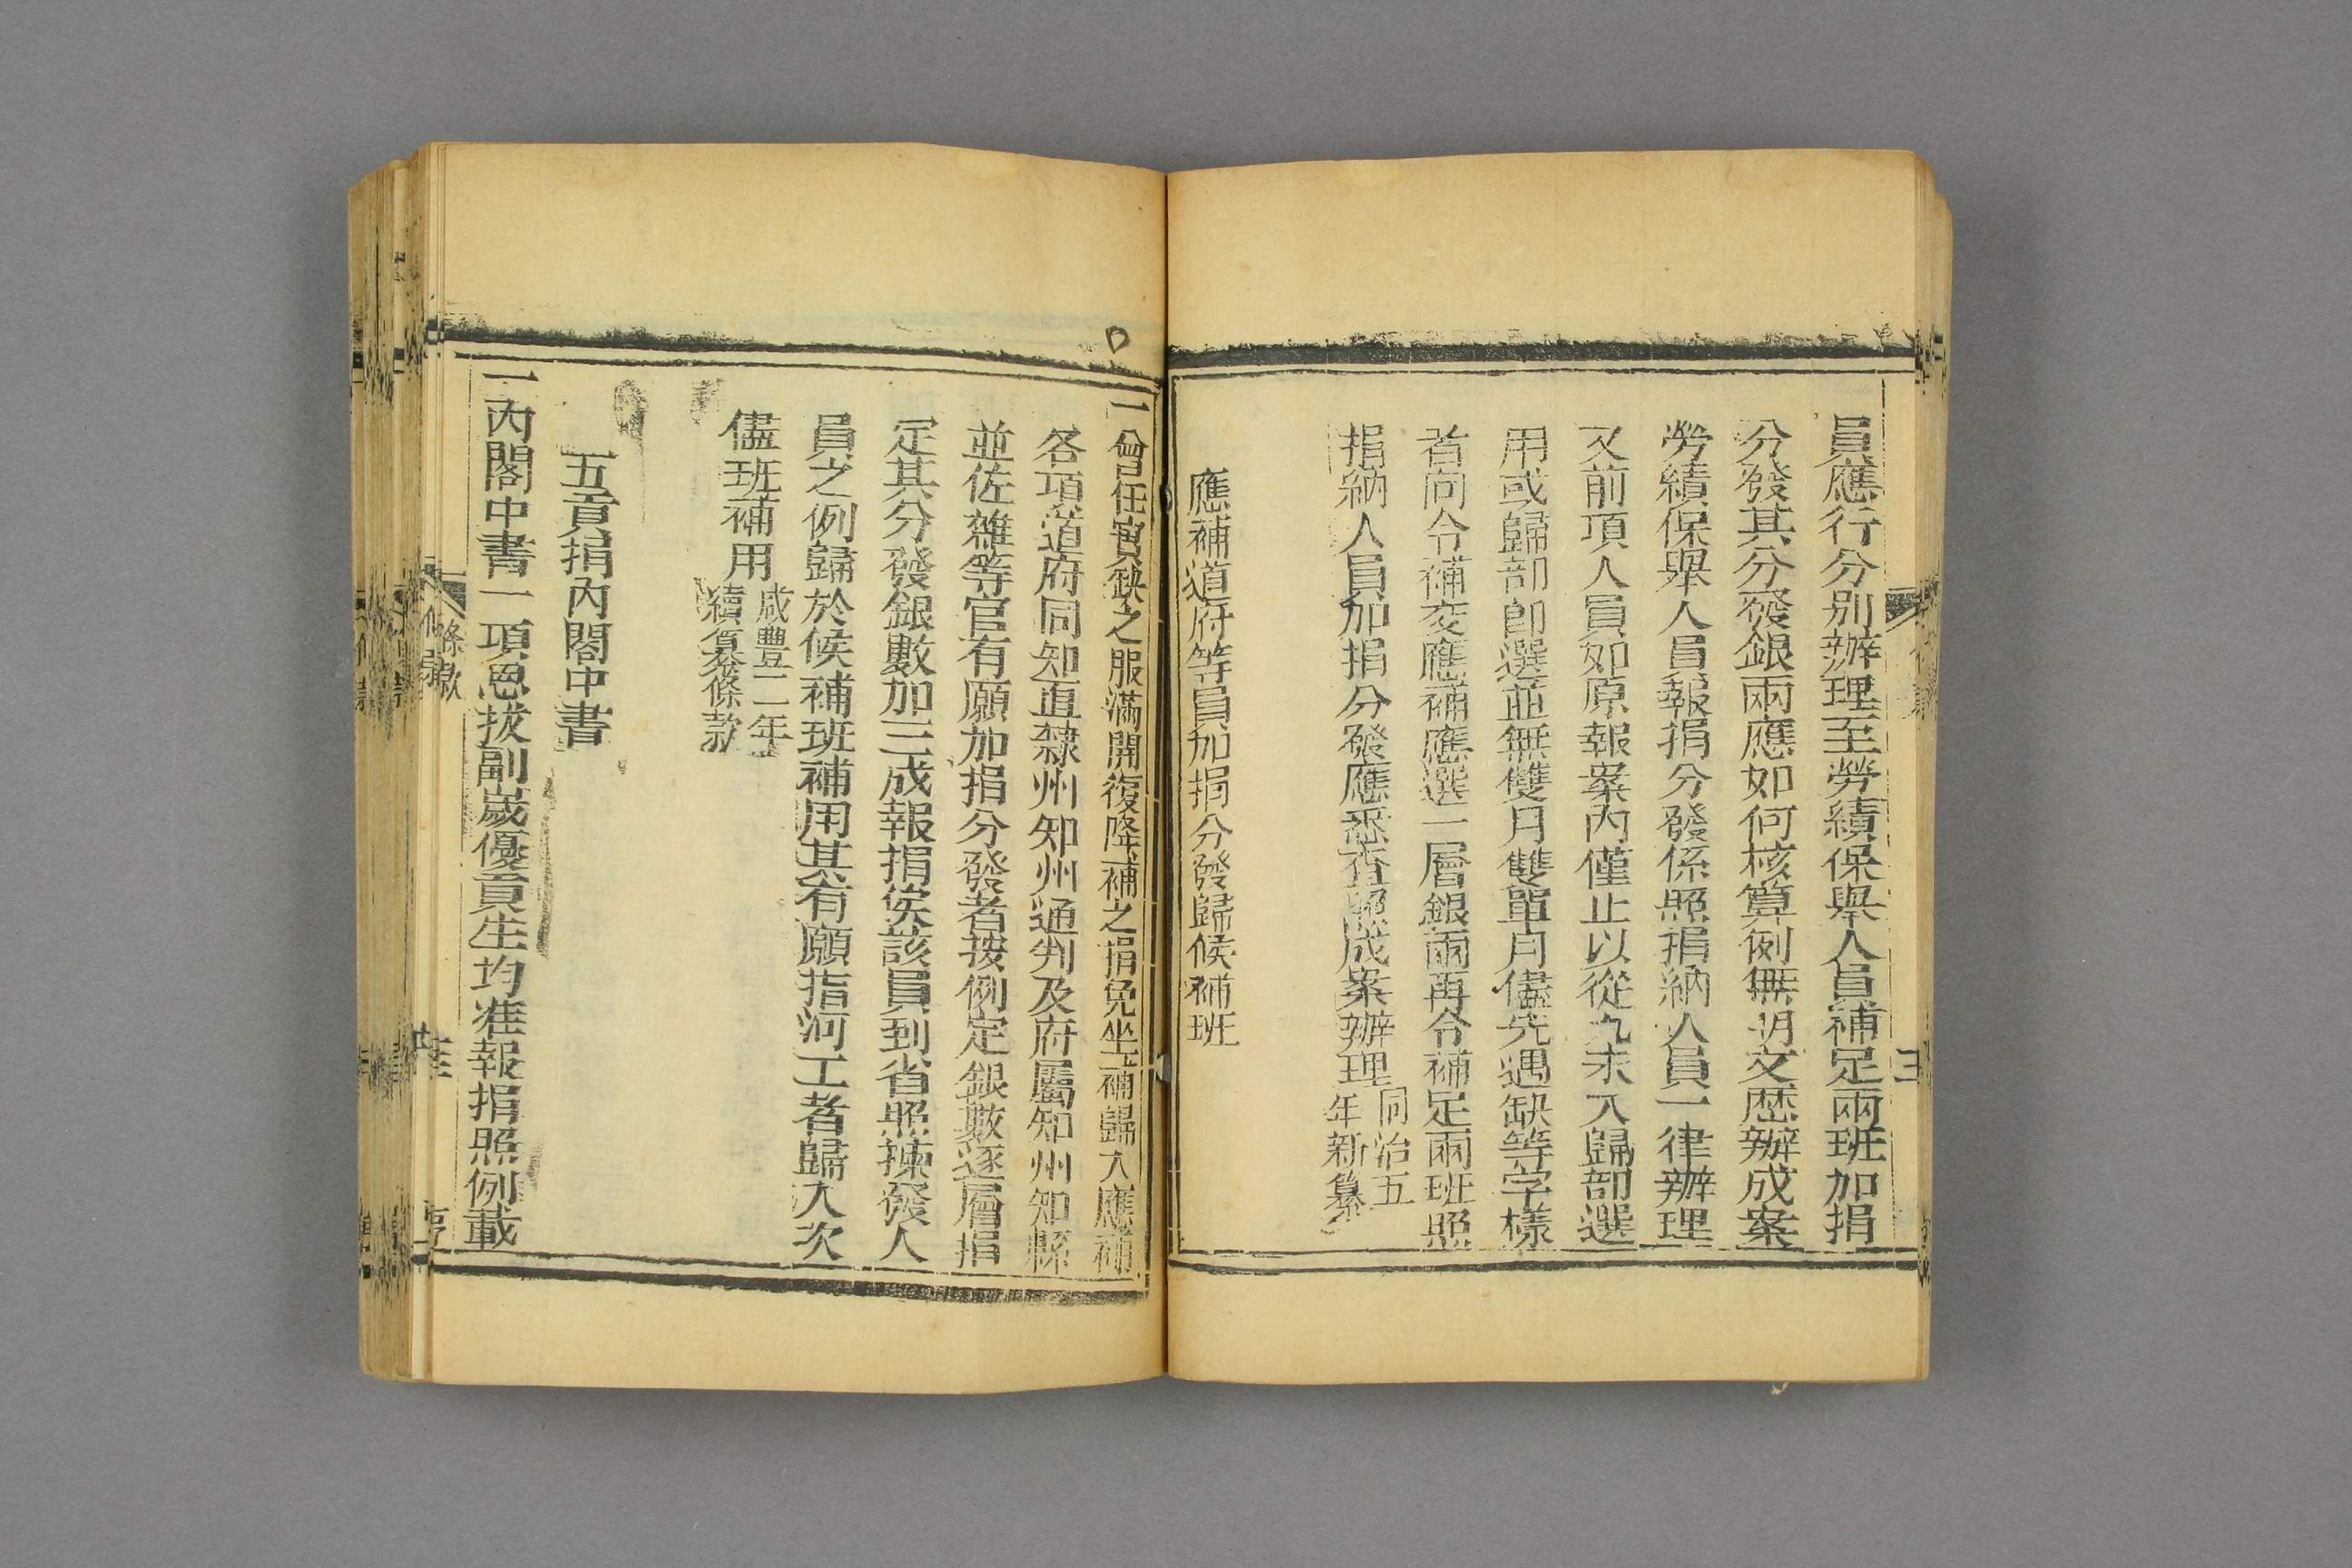 員應行分別辦理至勞績保舉人員補足兩班加捐
分發其分發銀兩應如何核算例無明文歷辦成案
勞績保舉人員報捐分發係照捐納人員一律辦理
又前項人員如原報案內僅止以從九未入歸部選
用或歸部卽選並無雙月雙單月儘先遇缺等字樣
首向令補交應補應選一層銀兩再令補足兩班照
捐納人員加捐分發應悉查照成案辦理
同治五
年新纂
應補道府等員加捐分發歸候補班
一曾任實缺之服滿開復降補之捐免坐補歸入應補
各項道府同知直隸州知州通判及府屬知州知縣
並佐雜等官有願加捐分發者按例定銀數逐層捐
定其分發銀數加三成報捐俟該員到省照揀發人
員之例歸於候補班補用其有願指河工者歸入次
儘班補用
咸豐二年
續纂條款
五貢捐內閣中書
一內閣中書一項恩拔副歲優貢生均准報捐照例載
條款